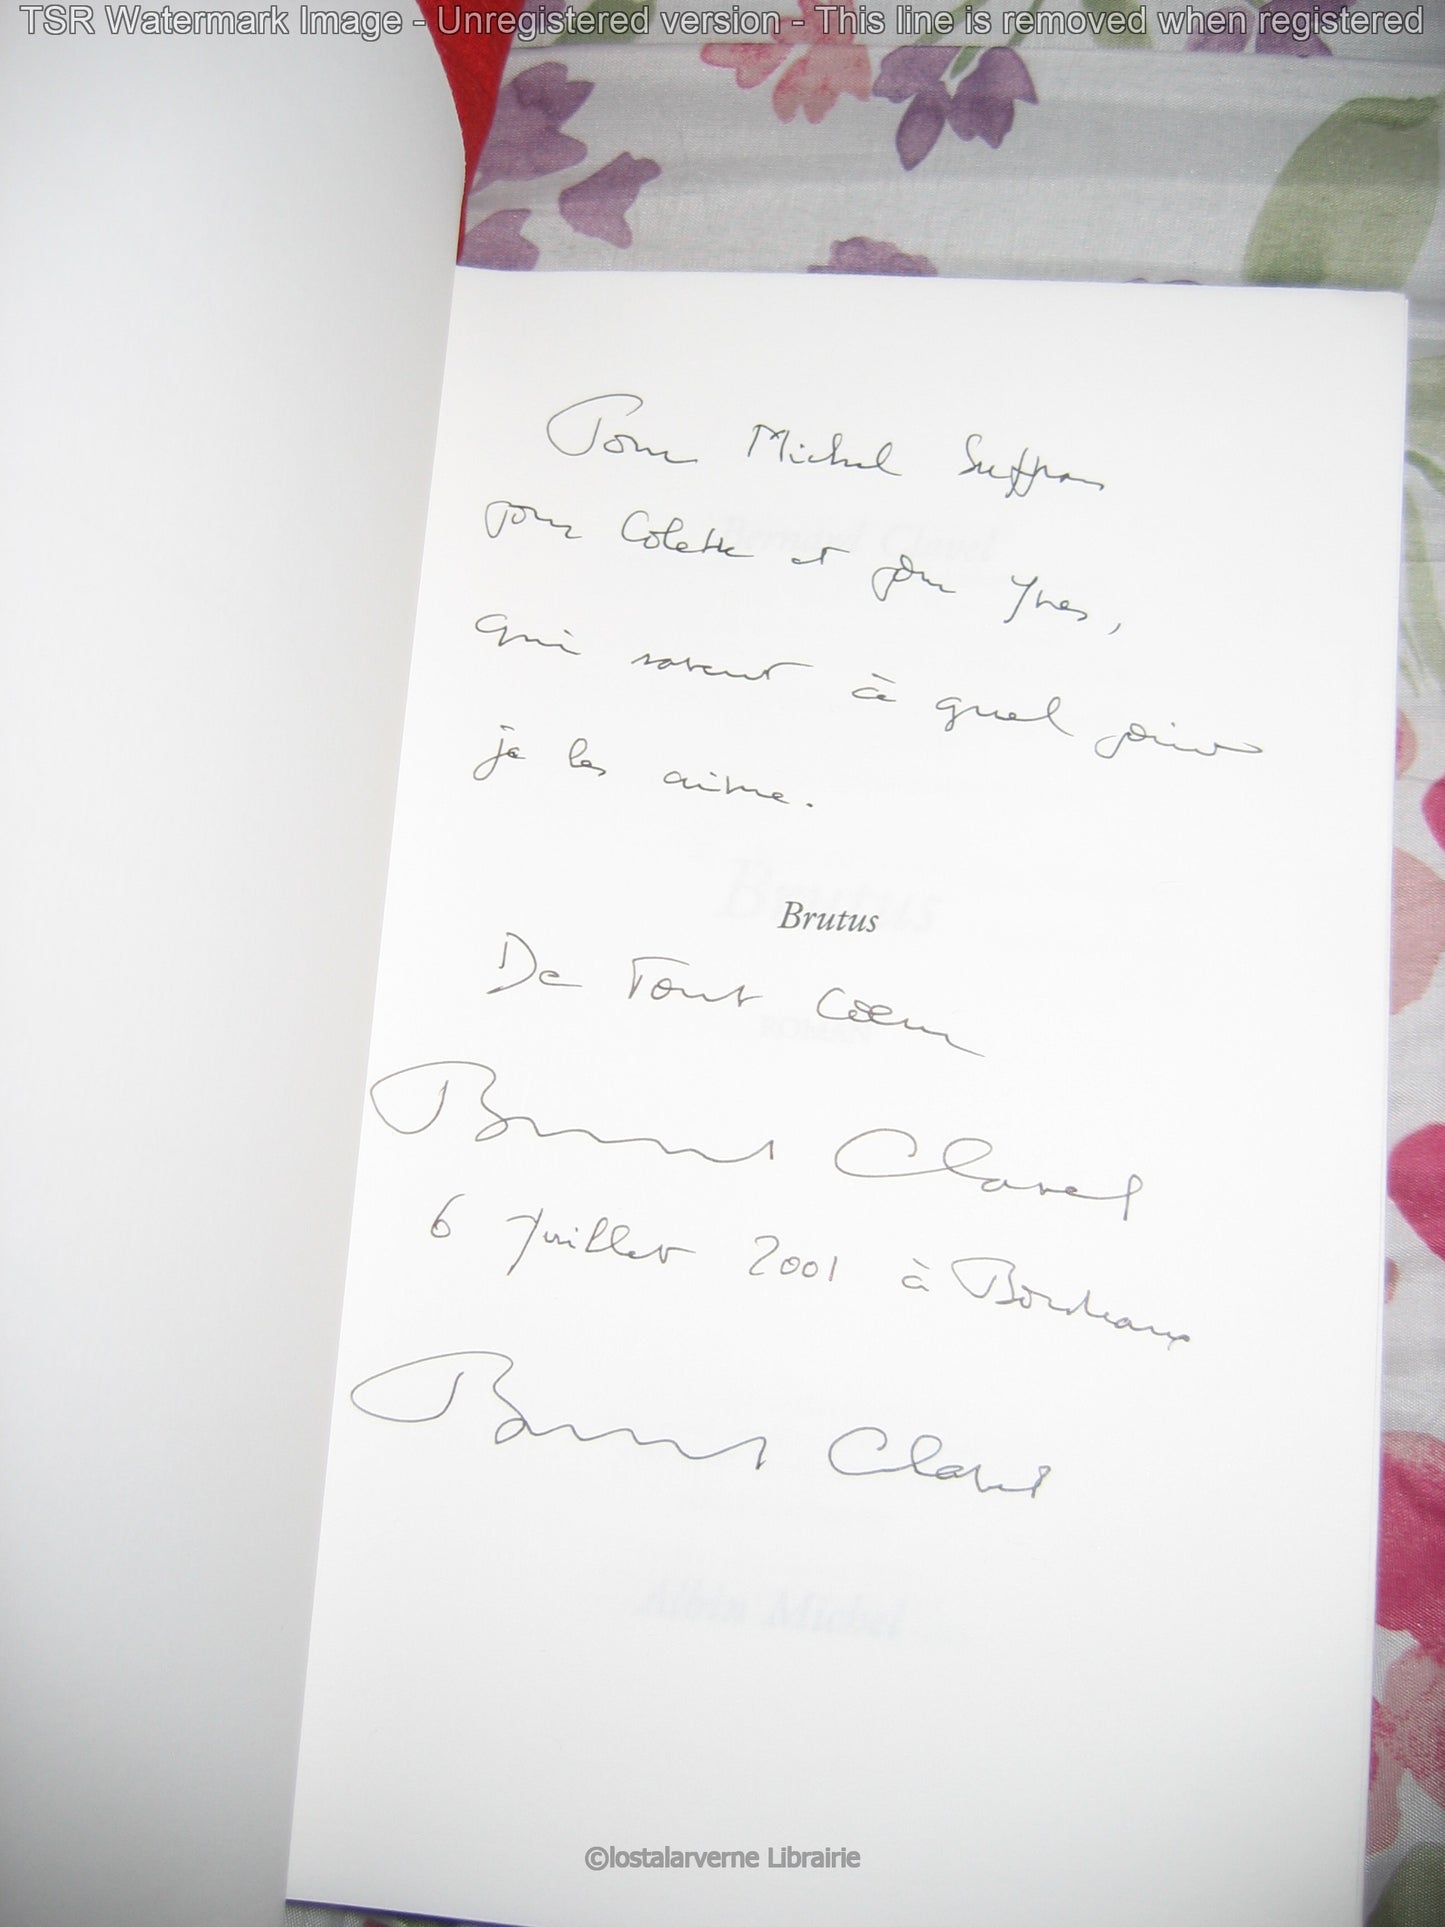 TSR Watermark Image - Unregistered version - This line is removed when registered
Pour Michel Suffran
pour Colette et pour Yves,
qui savent à quel point
je les aime.
Bernard Clavel
Brutus
Brutus
De Tout Coeur
ROMAN
Bernard Clavel
6 Juillet 2001 à Bordeaux
Bernard Clavel
Albin Michel
©lostalarverne Librairie